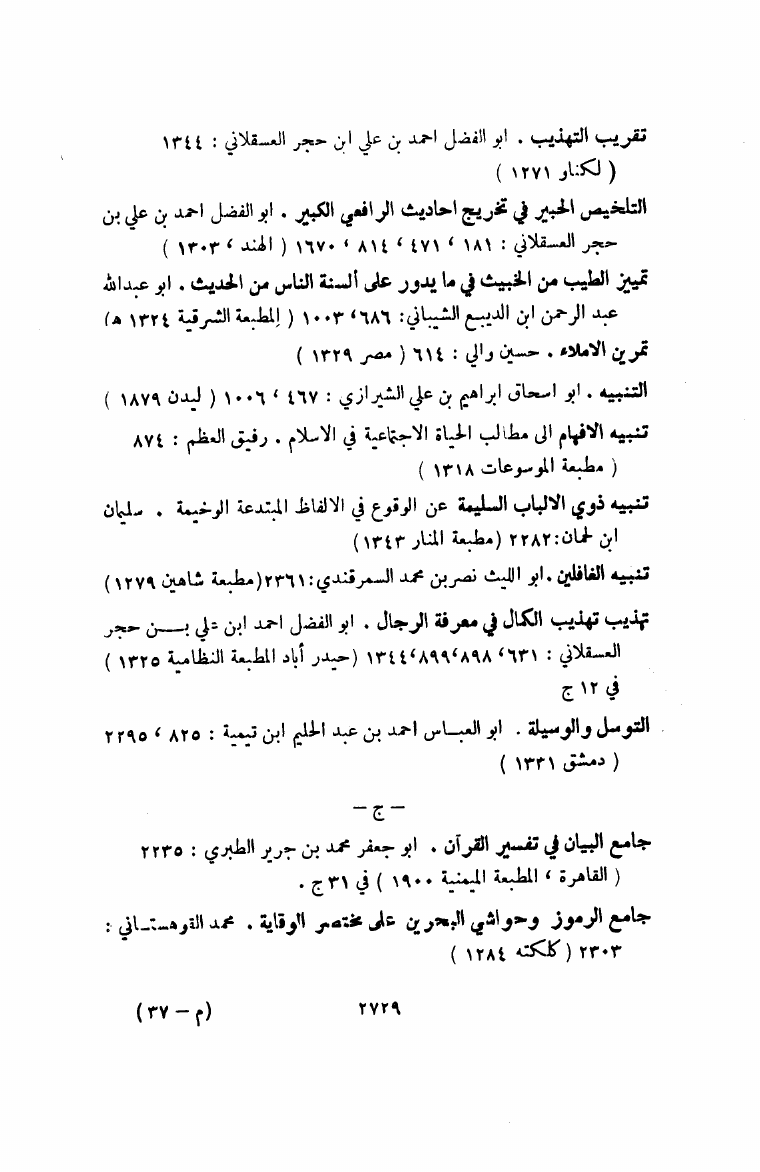 تقريب التهذيب . ابو الفضل احمد بن علي ابن حجر العسقلاني : ١٣٤٤
( لكناو ١٢٧١ )
التلخيص الحبير في تخريج احاديث الرافعي الكبير . ابو الفضل احمد بن علي بن
حجر العسقلاني : ١٨١ ، ٤٧١ ، ٨١٤ ، ١٦٧٠ ( الهند ، ١٣٠٣ )
تمييز الطيب من الخبيث في ما يدور على ألسنة الناس من الحديث . ابو عبدالله
عبد الرحمن ابن الديبع الشيباني: ٦٨٦، ١٠٠٣ ( المطبعة الشرقية ١٣٢٤ هـ)
تمرين الاملاء . حسين والي : ٦١٤ ( مصر ١٣٢٩ )
التنبيه . ابو اسحاق ابراهيم بن علي الشيرازي : ٤٦٧ ، ١٠٠٦ ( ليدن ١٨٧٩ )
تنبيه الافهام الى مطالب الحياة الاجتماعية في الاسلام . رفيق العظم : ٨٧٤
( مطبعة الموسوعات ١٣١٨ )
تنبيه ذوي الالباب السليمة عن الوقوع في الالفاظ المبتدعة الوخيمة . سليمان
ابن لحمان:٢٢٨٢ (مطبعة المنار ١٣٤٣)
تنبيه الغافلين .ابو الليث نصر بن محمد السمرقندي:٢٣٦١(مطبعة شاهين ١٢٧٩)
تهذيب تهذيب الكمال في معرفة الرجال . ابو الفضل احمد ابن علي بـن حجر
العسقلاني : ٦٣١، ٨٩٨،٨٩٩،١٣٤٤ (حيدر أباد المطبعة النظامية ١٣٢٥ )
في ١٢ ج
التوسل والوسيلة . ابو العباس احمد بن عبد الحليم ابن تيمية : ٨٢٥ ، ٢٢٩٥
( دمشق ١٣٣١ )
– ج –
جامع البيان في تفسير القرآن . ابو جعفر محمد بن جرير الطبري : ٢٢٣٥
( القاهرة ، المطبعة الميمنية ١٩٠٠ ) في ٣١ ج .
جامع الرموز وحواشي البحرين على مختصر الوقاية . محمد القوهستاني :
٢٣٠٣ ( كلكته ١٢٨٤ )
٢٧٢٩
(م – ٣٧)